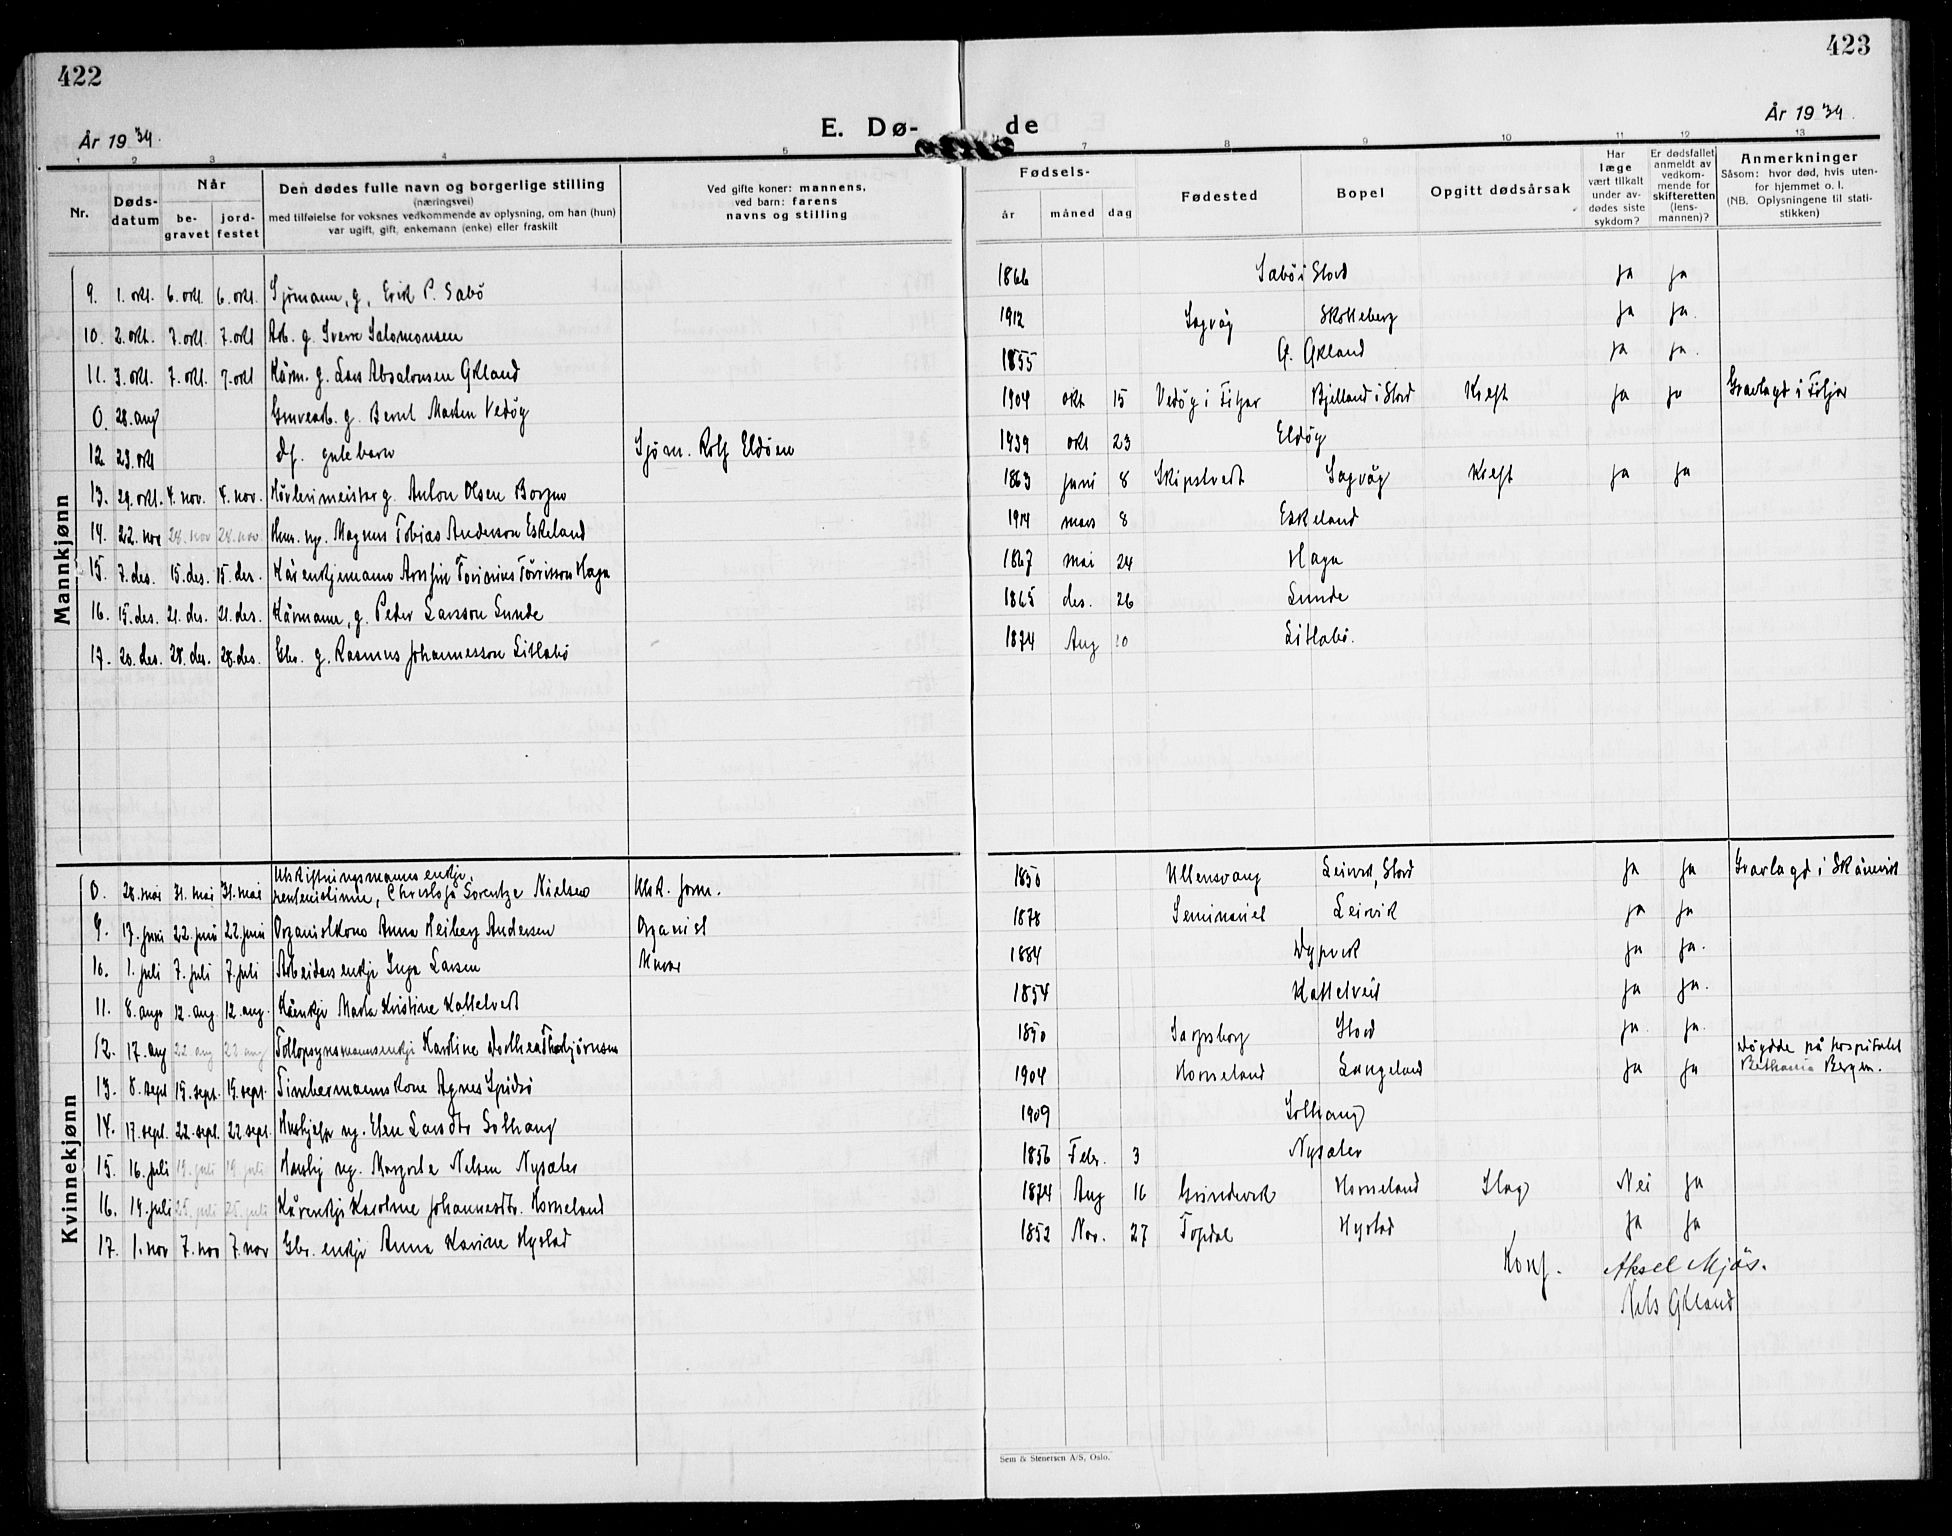 422
423
År 1939.
E. Dø-
de
År 1939.
1 2 3 4 5 7 8 9 10 11 12 13
Nr.
Døds-
datum
Når
be-
gravet
jord-
festet
Den dødes fulle navn og borgerlige stilling
(næringsvei)
med tilføielse for voksnes vedkommende av oplysning, om han (hun)
var ugift, gift, enkemann (enke) eller fraskilt
Ved gifte koner: mannens,
ved barn: farens
navns og stilling
Fødsels-
år måned dag
Fødested
Bopel
Opgitt dødsårsak
Har
læge
vært tilkalt
under av-
dødes siste
sykdom?
Er dødsfallet
anmeldt av
vedkom-
mende for
skifteretten
(lens-
mannen)?
Anmerkninger
Såsom: hvor død, hvis uten-
for hjemmet o. l.
(NB. Oplysningene til stati-
stikken)
Mannkjønn
9. 1. okt. 6. okt. 6. okt. Sjømann, g. Erik P. Sabø 1866 Sabø i Stord ja ja
10. 2. okt. 7. okt. 7. okt Arb. g. Sverre Salomonsen 1912 Sagvåg Skolleberg ja ja.
11. 3. okt. 7. okt. 7. okt Kårm. g. Lars Absalonsen Økland 1855 Ø. Økland ja ja.
0. 28. aug Gruvearb. g. Bernt Marten Vedøy 1904 okt 15 Vedøy i Fitjar Bjelland i Stord Kreft ja ja Gravlagd i Fitjar
12 23. okt df. gutebarn Sjøm. Rolf Eldøen 1939 okt 23 Eldøy
13. 29. okt. 4. nov. 4. nov. Høvlerimeister g. Anton Olsen 1863 juni 8 Skipstvedt Sagvåg Kreft ja ja
14. 22. nov 28. nov 28. nov. Magnus Tobias Anderson Eskeland 1914 mars 8 Eskeland
15. 7. des. 15. des. 15. des. Kårenkjemann Torrisson Haga 1867 mai 24 Haga
16. 15. des. 21. des. 21. des. Kårmann, g. Peder Larsson Sunde 1865 des. 26 Sunde
17. 20. des. 28. des. 28. des. Gbr. g. Rasmus Johannesson Litlabø 1874 Aug 10 Litlabø.
Kvinnekjønn
Utskiftningsmanns enkje,
0. 28. mai 31. mai 31. mai Sorentze Nielsen Utsk. form. 1850 Ullensvang Leirvik, Stord ja ja Gravlagd i Skånevik
9. 17. juni 22. juni 22. juni Organistkona Anna Heiberg Andersen Organist 1878 Seminariet Leirvik ja ja
10. 1. juli 7. juli 7. juli Arbeidars enkje Inga Larsen 1884 Dypvik ja ja.
11. 8. aug. 12. aug. 12. aug. Kårenkje Marta Kristine Kattelvedt 1854 Kattelveit ja ja.
12. 17. aug 22 aug 22 aug Tollopsynsmannsenkje Karoline Dorthea Thorbjørnsen 1850 Sarpsborg Stord ja ja.
13. 8. sept 15. sept. 15. sept. Timbermannskone Agnes Spidsø 1904 Horneland Langeland ja ja Døydde på hospitalet
Bethania Bergen.
14. 17. sept. 22. sept. 22 sept. Hushjelp ug. Larsdtr Solhaug 1909 Solhaug
15. 16. juli 19. juli 19. juli ug. Nelsen Nysæter 1856 Febr. 3 Nysæter
16. 19. juli 25. juli 25. juli Kårenkje Karoline Johannesdtr. Horneland 1874 Aug 16 Grindevik Horneland Slag Nei ja
17. 1. nov 7. nov 7. nov Gbr. enkje Anna Karine Hystad 1852 Nov. 27 Tysdal Hystad ja ja
Konf. Aksel Mjøs.
Nils Økland
Sem & Stenersen A/S, Oslo.